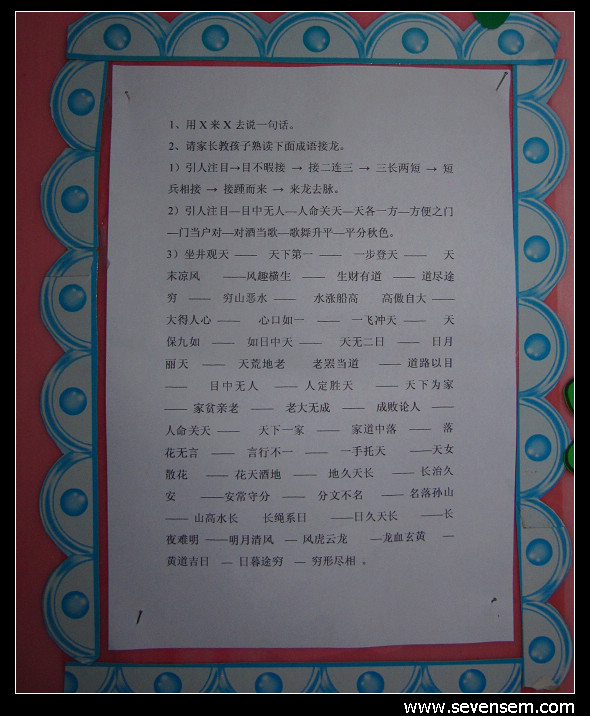 1、用X来X去说一句话。
2、请家长教孩子熟读下面成语接龙。
1）引人注目→目不暇接 → 接二连三 → 三长两短 → 短
兵相接 → 接踵而来 → 来龙去脉。
2）引人注目—目中无人—人命关天—天各一方—方便之门
—门当户对—对酒当歌—歌舞升平—平分秋色。
3）坐井观天 —— 天下第一 —— 一步登天 —— 天
末凉风 ——风趣横生 —— 生财有道 —— 道尽途
穷 —— 穷山恶水 —— 水涨船高 高傲自大 ——
大得人心 —— 心口如一 —— 一飞冲天 —— 天
保九如 —— 如日中天 —— 天无二日 —— 日月
丽天 —— 天荒地老 老罴当道 —— 道路以目
—— 目中无人 —— 人定胜天 —— 天下为家
—— 家贫亲老 —— 老大无成 —— 成败论人 ——
人命关天 —— 天下一家 —— 家道中落 —— 落
花无言 —— 言行不一 —— 一手托天 ——天女
散花 —— 花天酒地 —— 地久天长 —— 长治久
安 ——安常守分 —— 分文不名 —— 名落孙山
—— 山高水长 长绳系日 ——日久天长 ——长
夜难明 ——明月清风 — 风虎云龙 —龙血玄黄 —
黄道吉日 — 日暮途穷 — 穷形尽相 。
www.sevensem.com